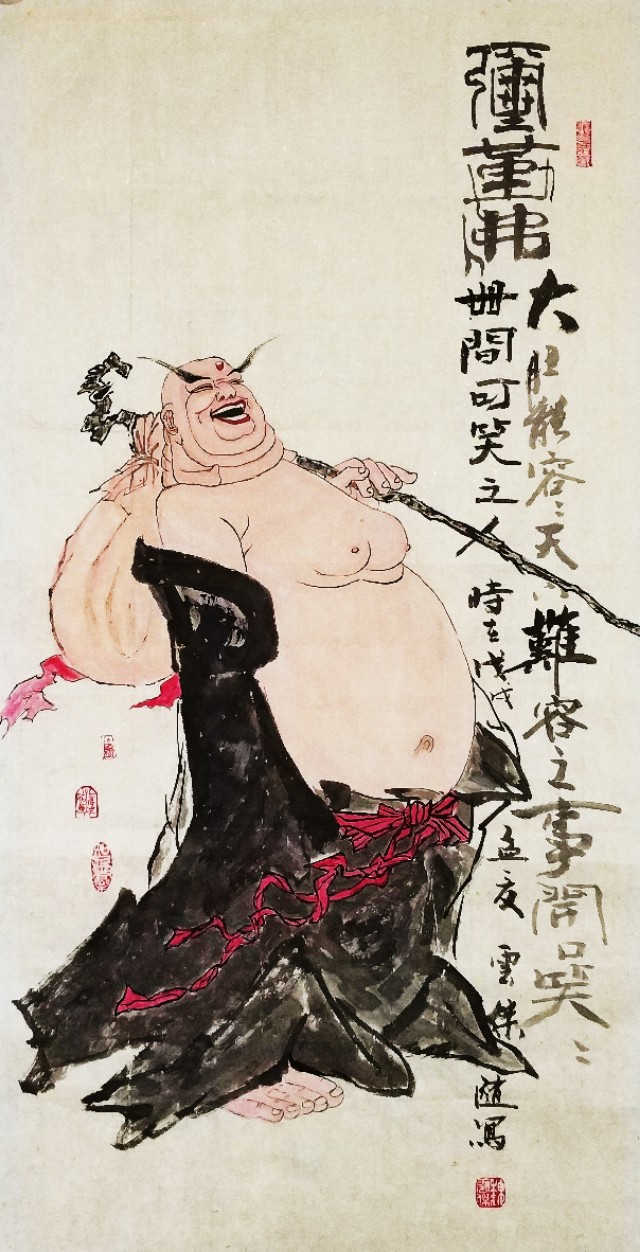 彌勒佛
大肚能容〻天下難容之事開口笑〻
世間可笑之人
時在戊戌孟夏雲傑隨寫